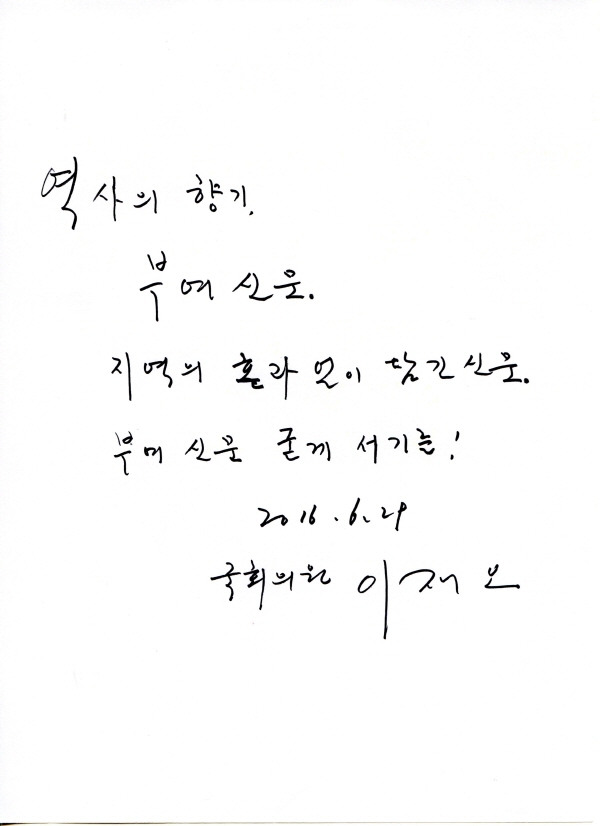 역사의 향기.
부여 신문.
지역의 혼과 얼이 담긴 신문.
부여 신문 굳게 서기를!
2016.6.29
국회의원 이재오